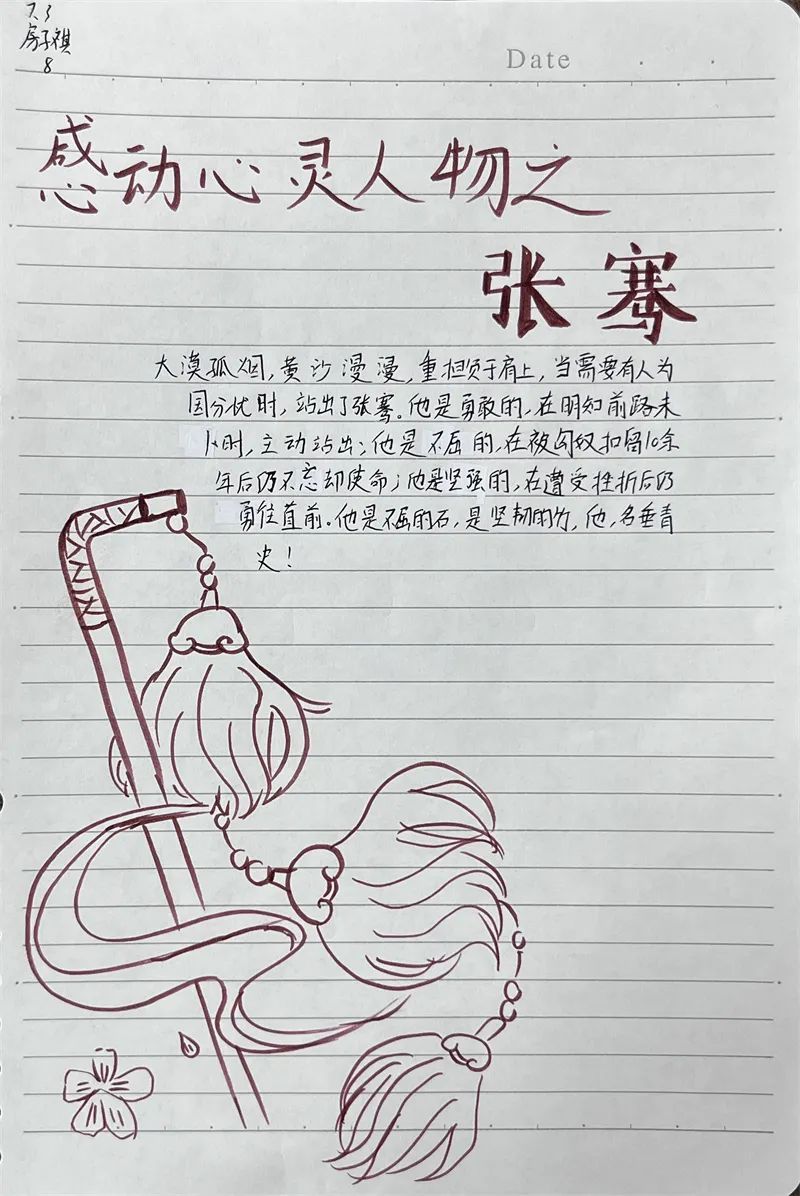 7.3
房子祺
8
Date
感动心灵人物之
张骞
大漠孤烟，黄沙漫漫，重担负于肩上，当需要有人为
国分忧时，站出了张骞。他是勇敢的，在明知前路未
卜时，主动站出；他是不屈的，在被匈奴扣留10余
年后仍不忘却使命；他是坚强的，在遭受挫折后仍
勇往直前。他是不屈的石，是坚韧的竹，他，名垂青
史！